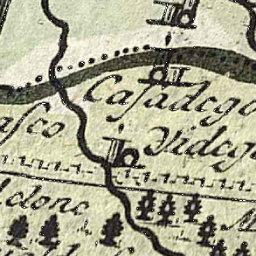 Casadego
asco
Videg
ldone